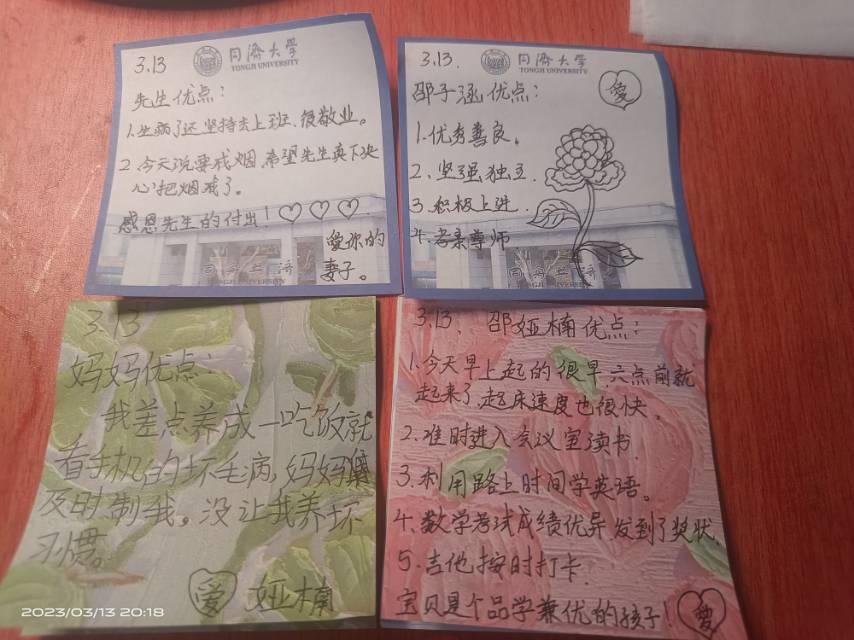 3.13
同济大学
TONGJI UNIVERSITY
先生优点：
1.生病了还坚持去上班、很敬业。
2.今天说要戒烟、希望先生真下决
心把烟戒了。
感恩先生的付出！♡♡♡
爱你的
妻子。
同舟共济
TONGJI UNIVERSITY
3.13.
同济大学
TONGJI UNIVERSITY
邵子涵优点：
爱
1.优秀善良。
2.坚强独立.
3.积极上进.
4.孝亲尊师.
同舟共济
TONGJI UNIVERSITY
3.13
妈妈优点：
我差点养成一吃饭就
看手机的坏毛病,妈妈
及时制我。没让我养坏
习惯。
爱 娅楠
3.13. 邵娅楠优点：
1.今天早上起的很早.六点前就
起来了,起床速度也很快.
2.准时进入会议室读书.
3.利用路上时间学英语。
4.数学考试成绩优异 发到了奖状
5.吉他按时打卡.
宝贝是个品学兼优的孩子！ 爱
2023/03/13 20:18